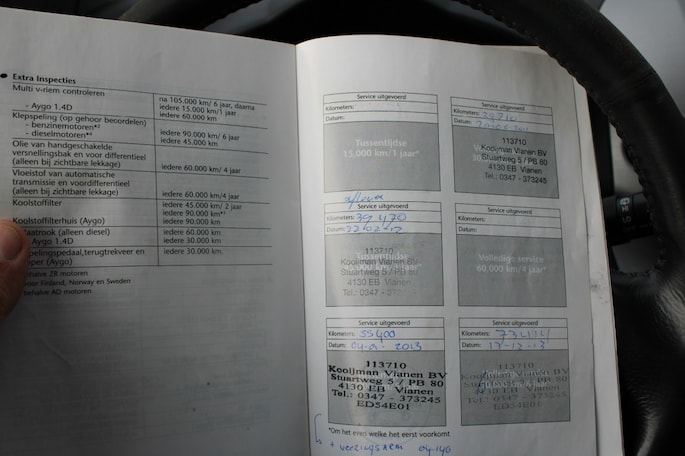 Extra Inspecties
Multi v-riem controleren
na 105.000 km/ 6 jaar, daarna
iedere 15.000 km/1 jaar
- Aygo 1.4D
iedere 60.000 km
Klepspeling (op gehoor beoordelen)
- benzinemotoren*²
iedere 90.000 km/ 6 jaar
- dieselmotoren*³
iedere 45.000 km
Olie van handgeschakelde
versnellingsbak en voor differentieel
(alleen bij zichtbare lekkage)
iedere 60.000 km/4 jaar
Vloeistof van automatische
transmissie en voordifferentieel
(alleen bij zichtbare lekkage)
iedere 60.000 km/4 jaar
Koolstoffilter
iedere 45.000 km/ 2 jaar
iedere 90.000 km*³
Koolstoffilterhuis (Aygo)
iedere 90.000 km
aatrook (alleen diesel)
iedere 60.000 km
Aygo 1.4D
iedere 30.000 km
pelingspedaal,terugtrekveer en
oper (Aygo)
iedere 30.000 km.
ehalve ZR motoren
oor Finland, Norway en Sweden
ehalve AD motoren
Service uitgevoerd
Kilometers:
Datum:
Tussentijdse
15.000 km/1 jaar*
Service uitgevoerd
Kilometers:
Datum:
113710
Kooijman Vianen BV
Stuartweg 5 / PB 80
4130 EB Vianen
Tel.: 0347 - 373245
Service uitgevoerd
Kilometers: 39470
Datum: 22-02-12
Tussentijdse
113710
Kooijman Vianen BV
Stuartweg 5 / PB 80
4130 EB Vianen
Tel.: 0347 - 373245
Service uitgevoerd
Kilometers:
Datum:
Volledige service
60.000 km/4 jaar*
Service uitgevoerd
Kilometers: 55400
Datum: 2013
113710
Kooijman Vianen BV
Stuartweg 5 / PB 80
4130 EB Vianen
Tel.: 0347 - 373245
ED54E01
Service uitgevoerd
Kilometers: 73414
Datum: 17-12-13
113710
Kooijman Vianen BV
Stuartweg 5 / PB 80
4130 EB Vianen
Tel.: 0347 - 373245
ED54E01
*Om het even welke het eerst voorkomt